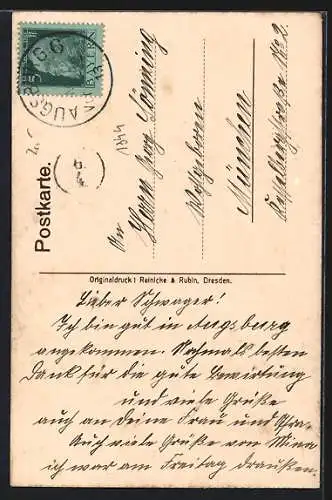 5 PF
BAYERN
AUGSBURG
1844
Postkarte.
An
Herrn Georg Sönning
Wohlgeboren
München
No 2.
Originaldruck: Reinicke & Rubin, Dresden.
Lieber Schwager!
Ich bin gut in Augsburg
angekommen. Nochmals besten
Dank für die gute Bewirtung
und viele Grüße
auch an Deine Frau und
Auch viele Grüße von Mina
ich war am Freitag draußen.